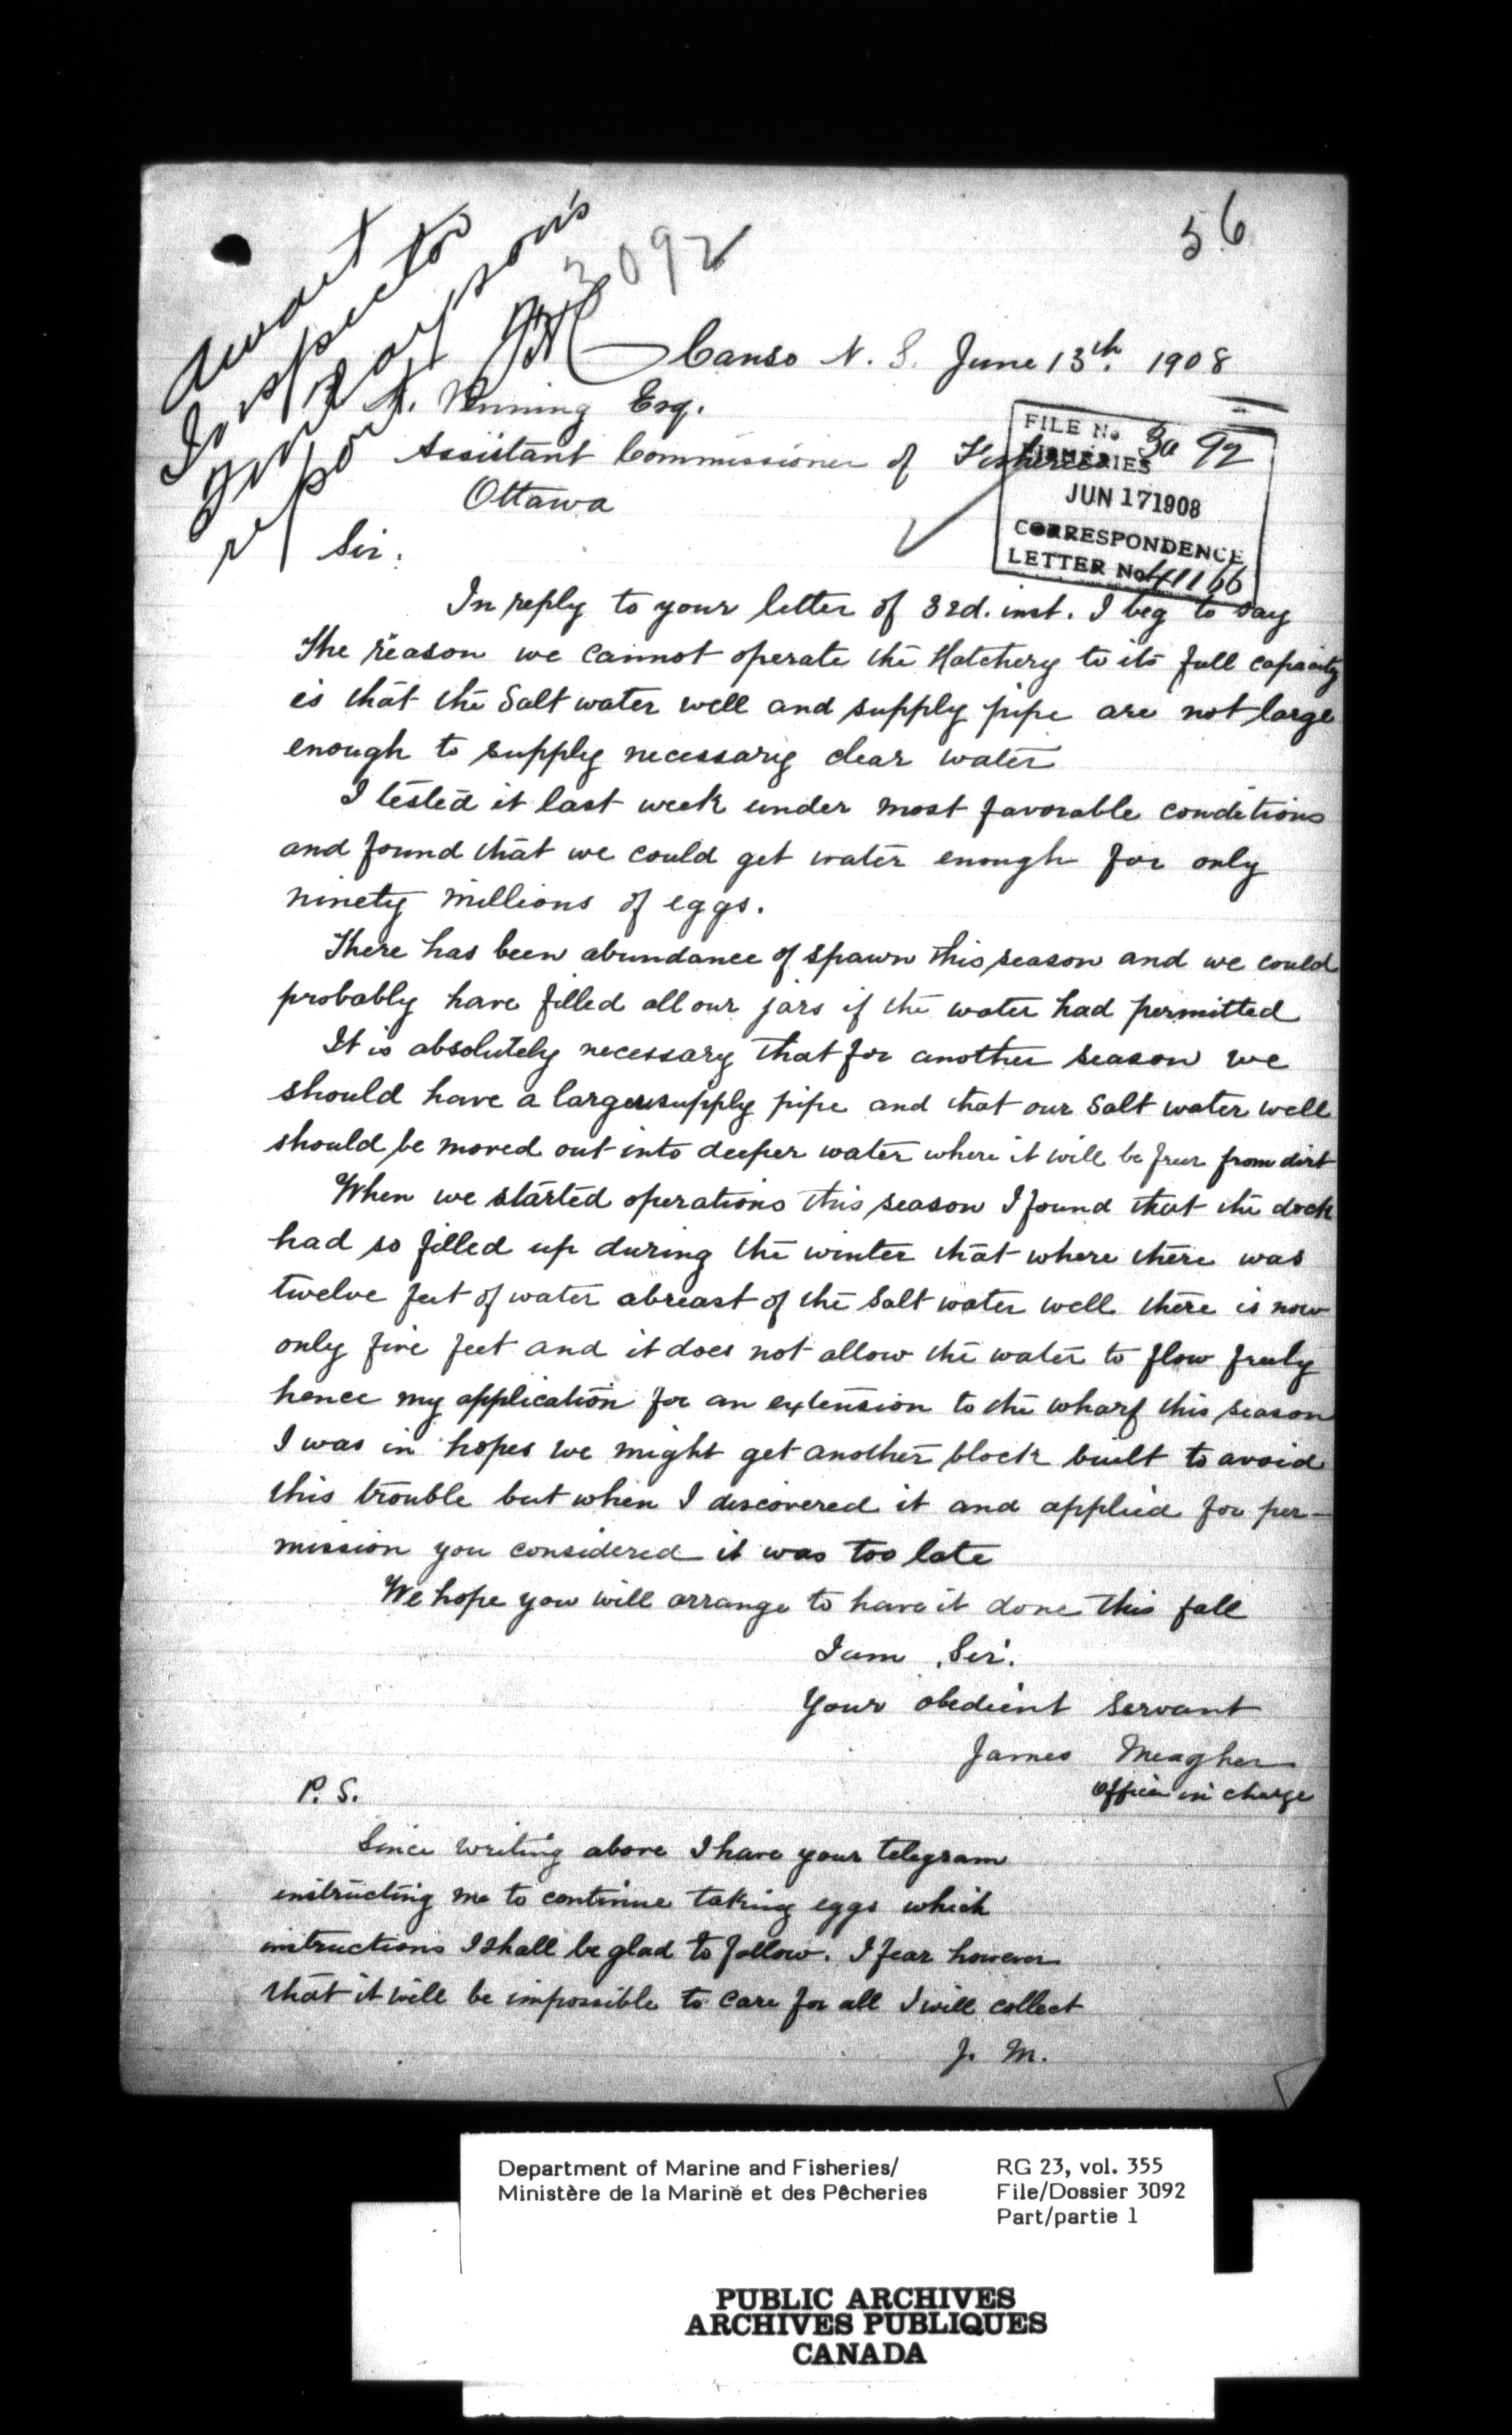 56
3092
Await
Inspector
report
Canso N. S. June 13th. 1908
Venning Esq.
Assistant Commissioner of Fisheries
Ottawa
FILE No 3092
FISHERIES
JUN 17 1908
CORRESPONDENCE
LETTER No 41166
Sir.
In reply to your letter of 3rd. inst. I beg to say
The reason we cannot operate the Hatchery to its full capacity
is that the Salt water well and supply pipe are not large
enough to supply necessary clear water
I tested it last week under most favorable conditions
and found that we could get water enough for only
ninety millions of eggs.
There has been abundance of spawn this season and we could
probably have filled all our jars if the water had permitted
It is absolutely necessary that for another season we
should have a larger supply pipe and that our Salt water well
should be moved out into deeper water where it will be freer from dirt
When we started operations this season I found that the dock
had so filled up during the winter that where there was
twelve feet of water abreast of the Salt water well there is now
only five feet and it does not allow the water to flow freely
hence my application for an extension to the wharf this season
I was in hopes we might get another block built to avoid
this trouble but when I discovered it and applied for per-
mission you considered it was too late
We hope you will arrange to have it done this fall
I am, Sir.
Your obedient Servant
James Meagher
Officer in charge
P. S.
Since writing above I have your telegram
instructing me to continue taking eggs which
instructions I shall be glad to follow. I fear however
that it will be impossible to care for all I will collect
J. M.
Department of Marine and Fisheries/
Ministère de la Marine et des Pêcheries
RG 23, vol. 355
File/Dossier 3092
Part/partie 1
PUBLIC ARCHIVES
ARCHIVES PUBLIQUES
CANADA